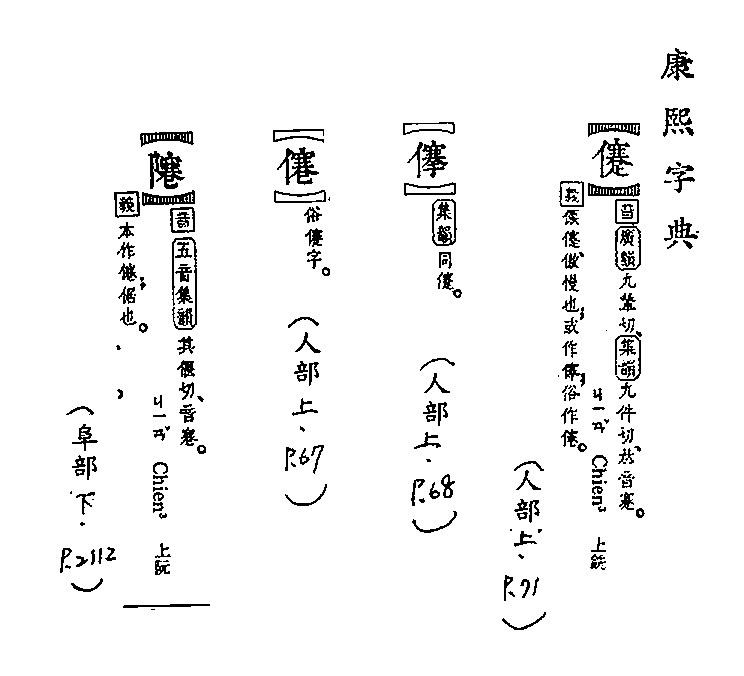 康熙字典
音 廣韻 九輦切、集韻 九件切、𠀤音蹇。
ㄐㄧㄢˇ Chien³ 上銑
義 傲慢也；或作俗作
(人部上．P.91)
集韻 同
(人部上．P.68)
俗字。
(人部上．P.67)
音 五音集韻 其偃切、音寋。
ㄐㄧㄢˇ Chien³ 上阮
義 本作倨也。
(阜部下．P.2112)